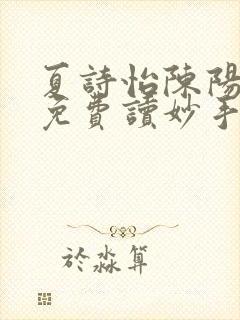 夏詩怡陳陽
免費讀妙手
於淼算